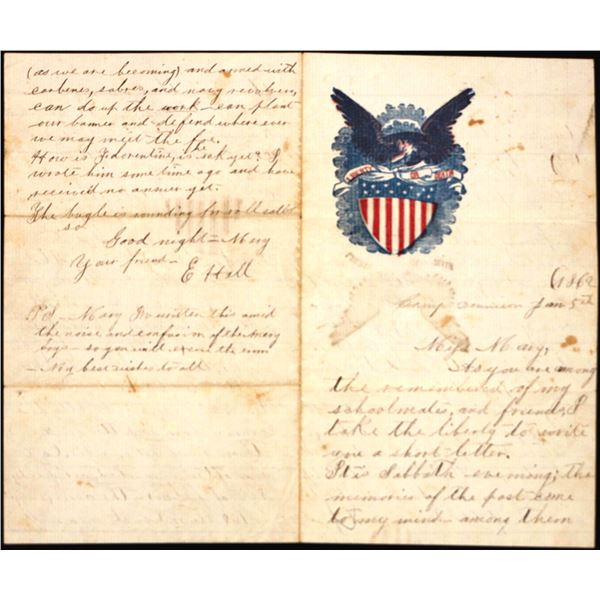 (as we are becoming) and armed with
carbines, sabres, and navy revolvers,
can do up the work – can plant
our banner and defend where ever
we may meet the foe.
How is Florentine, is he sick yet? I
wrote him some time ago and have
received no answer yet.
The bugle is sounding for roll call
so
Good night – Mary
Your friend – E Hall
P.S – Mary I written this amid
the noise and confusion of the many
boys – so you will excuse the
– My best wishes to all
LIBERTY OR DEATH
(1862
Camp Jan 5th
Miss Mary,
As you are among
the remembered of my
schoolmates, and friends, I
take the liberty to write
you a short letter.
It is Sabbath evening; the
memories of the past come
to my mind – among them